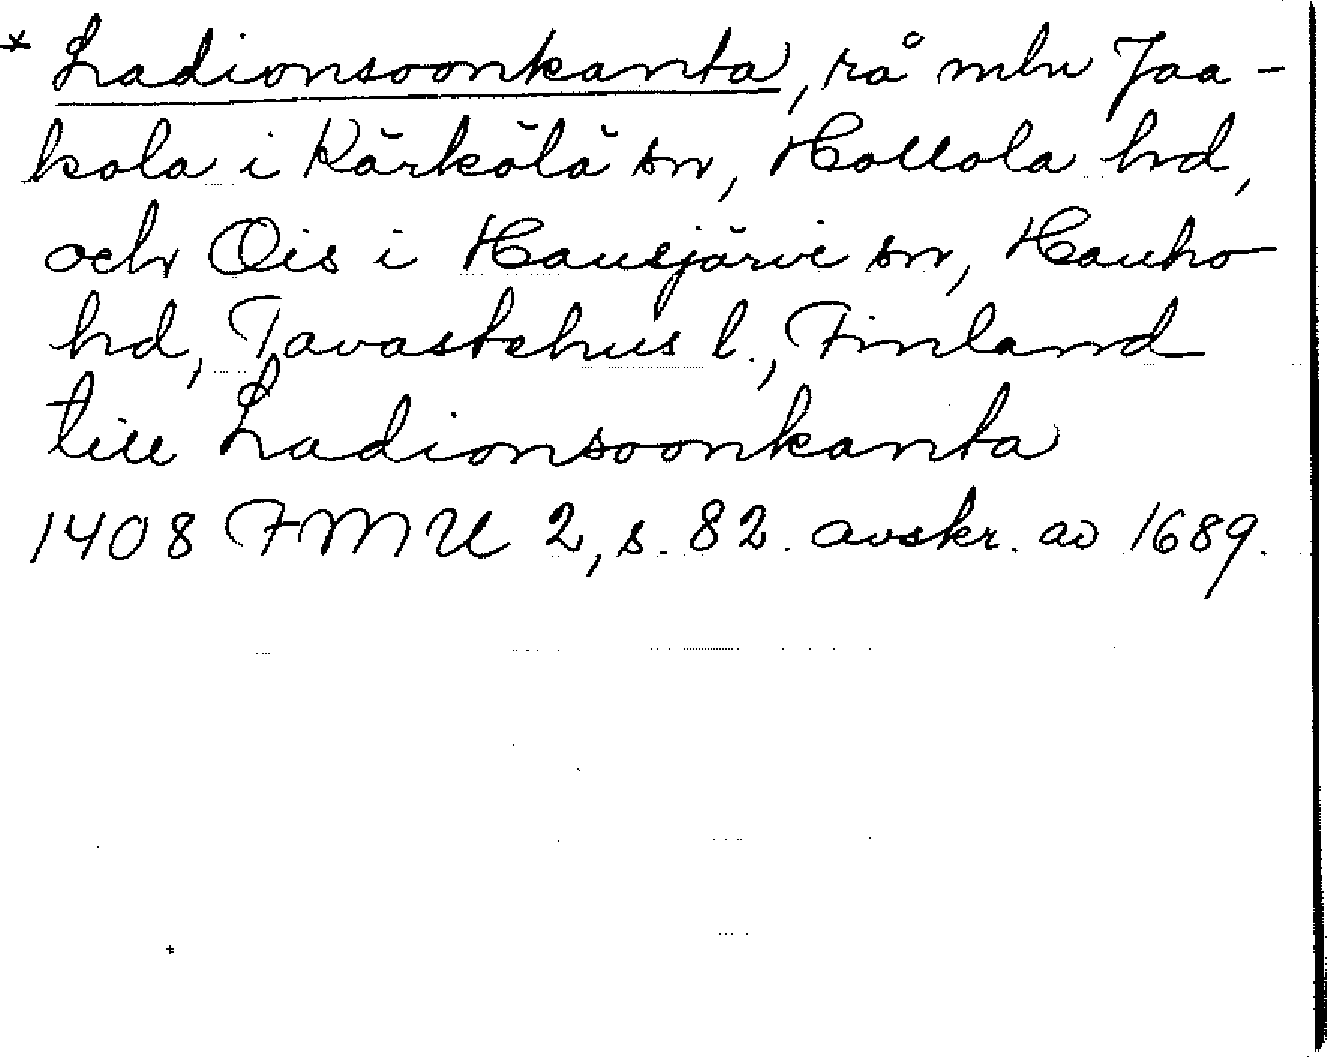 * Ladionsoonkanta, rå mln Jaa-
kola i Kärkölä sn, Hollola hd,
och Ois i Hausjärvi sn, Hauho
hd, Tavastehus l., Finland
till Ladionsoonkanta
1408 FMU 2, s. 82. avskr. av 1689.